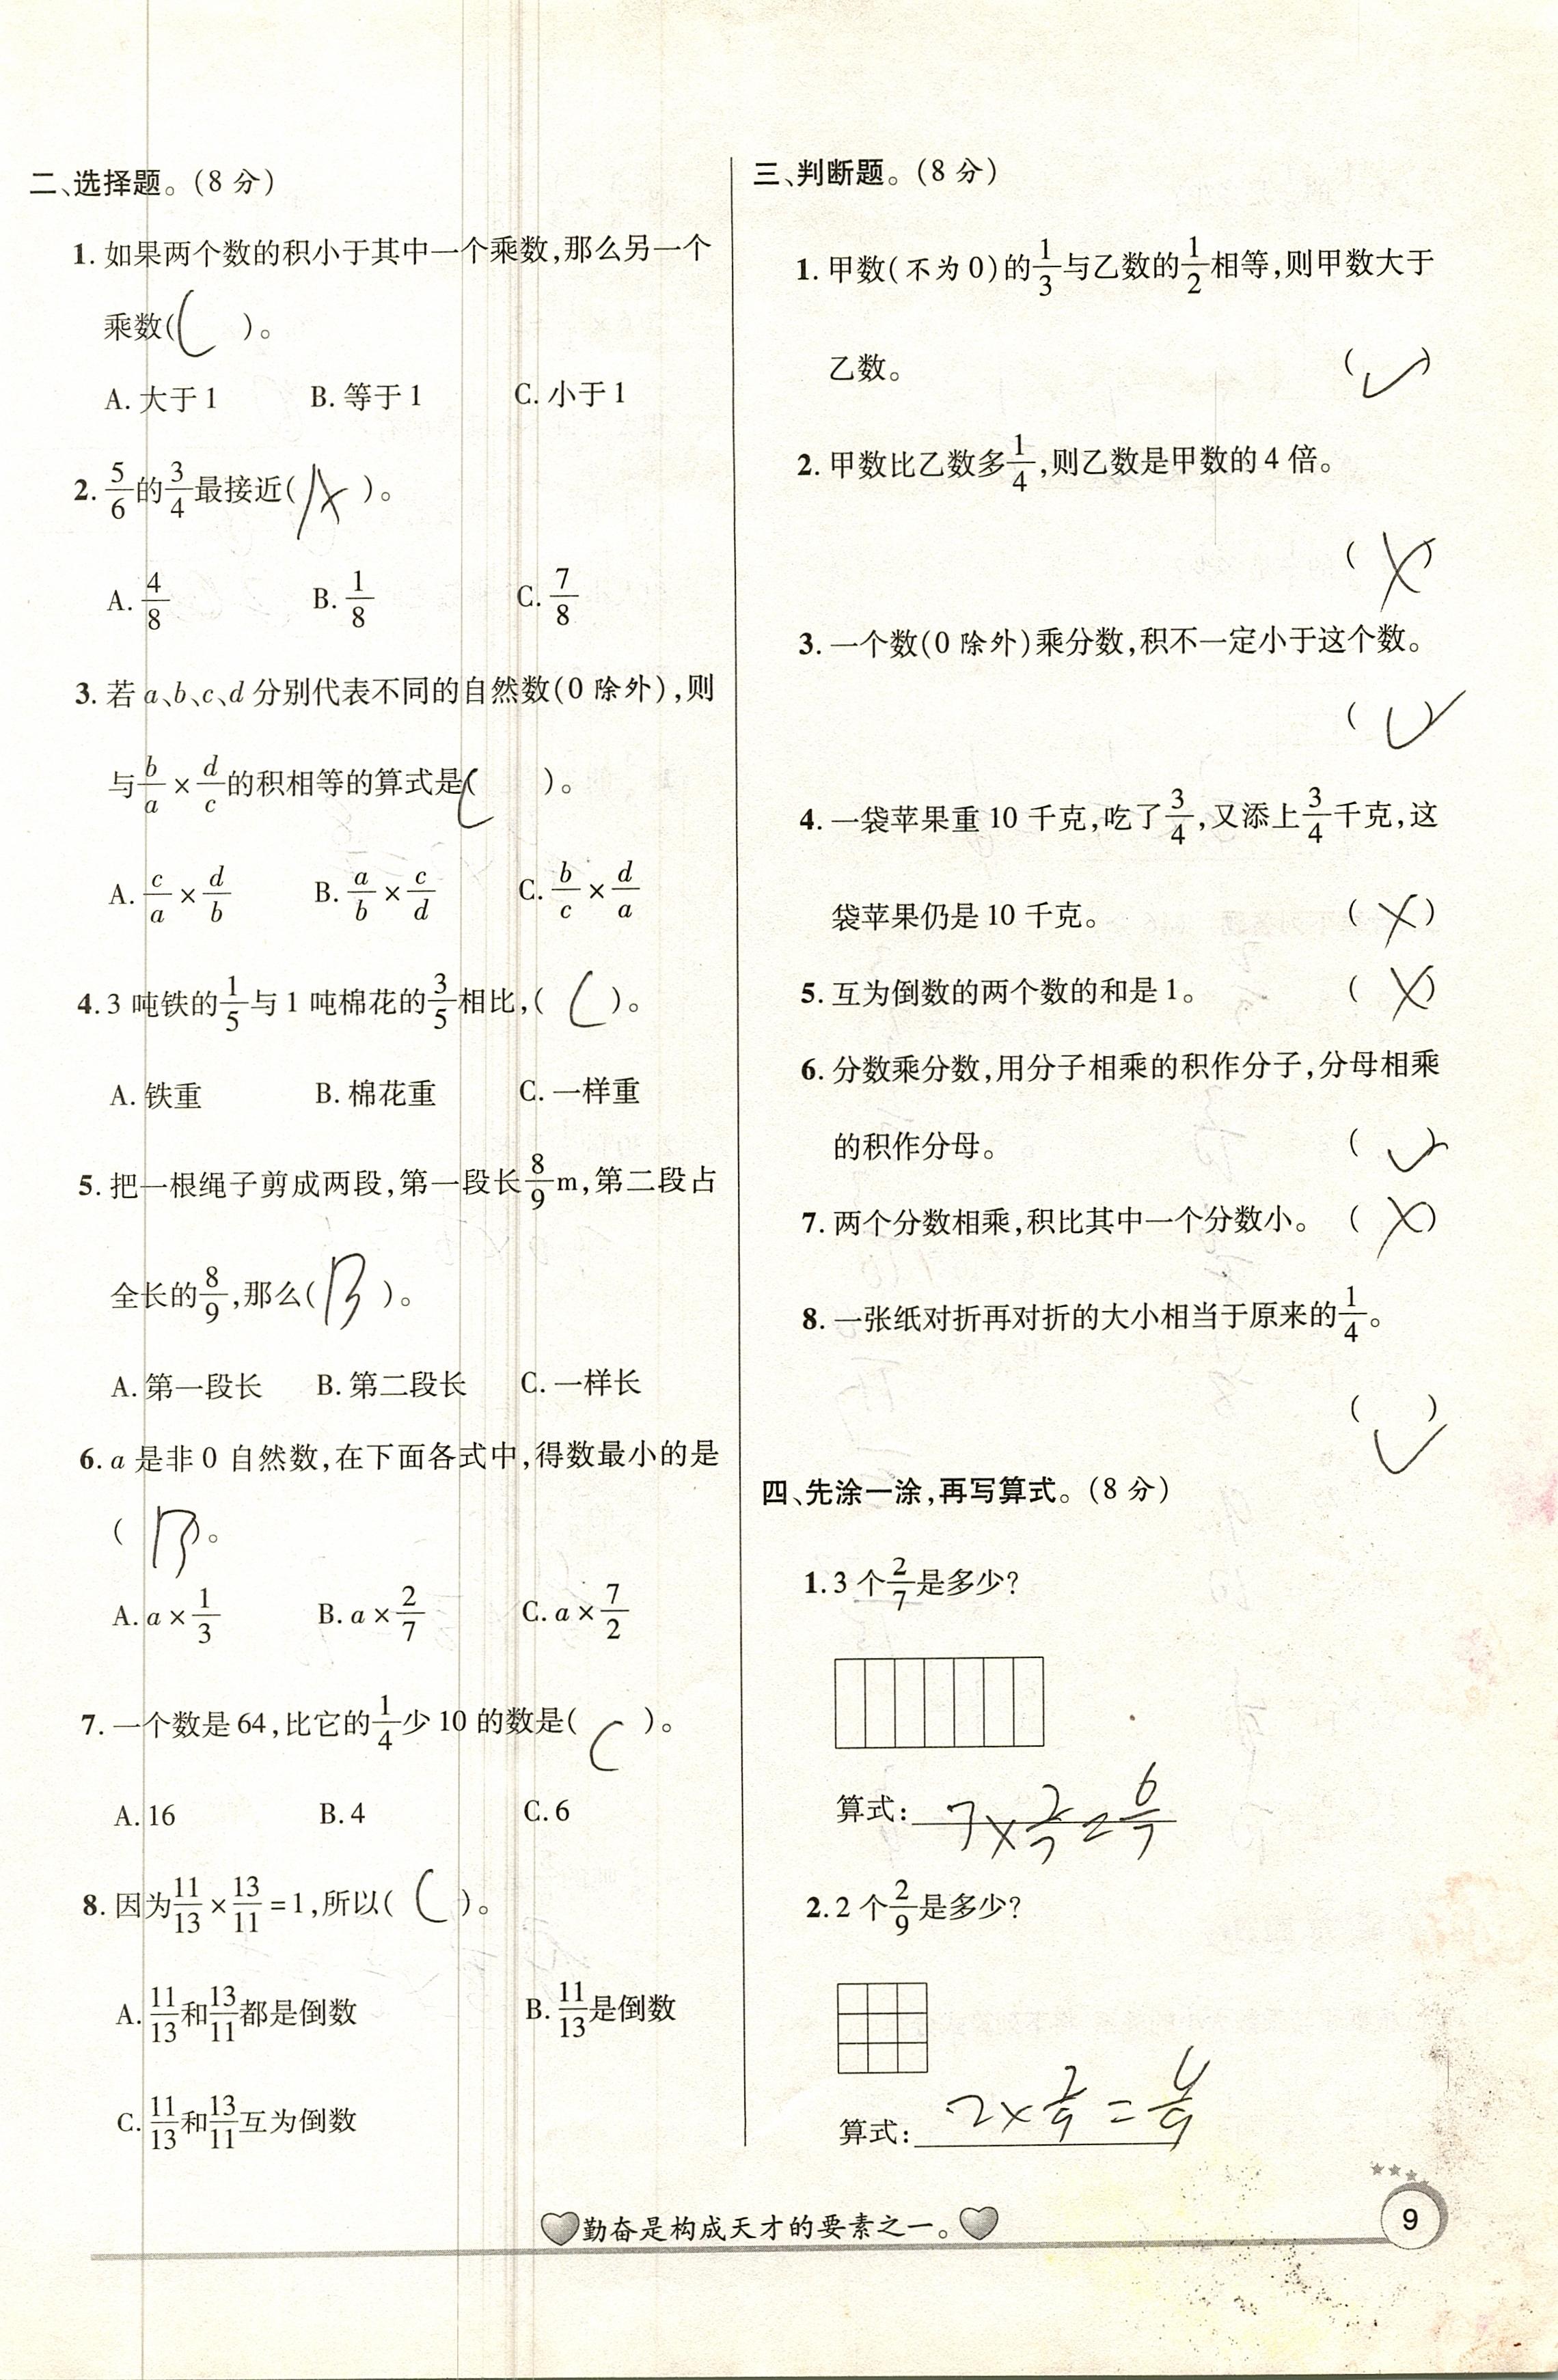 二、选择题。(8 分)
1. 如果两个数的积小于其中一个乘数,那么另一个
乘数( C )。
A. 大于 1 B. 等于 1 C. 小于 1
2. 5/6 的 3/4 最接近( A )。
A. 4/8 B. 1/8 C. 7/8
3. 若 a、b、c、d 分别代表不同的自然数(0 除外),则
与 b/a × d/c 的积相等的算式是( C )。
A. c/a × d/b B. a/b × c/d C. b/c × d/a
4. 3 吨铁的 1/5 与 1 吨棉花的 3/5 相比,( C )。
A. 铁重 B. 棉花重 C. 一样重
5. 把一根绳子剪成两段,第一段长 8/9 m,第二段占
全长的 8/9,那么( B )。
A. 第一段长 B. 第二段长 C. 一样长
6. a 是非 0 自然数,在下面各式中,得数最小的是
( B )。
A. a × 1/3 B. a × 2/7 C. a × 7/2
7. 一个数是 64,比它的 1/4 少 10 的数是( C )。
A. 16 B. 4 C. 6
8. 因为 11/13 × 13/11 = 1,所以( C )。
A. 11/13 和 13/11 都是倒数 B. 11/13 是倒数
C. 11/13 和 13/11 互为倒数
三、判断题。(8 分)
1. 甲数(不为 0)的 1/3 与乙数的 1/2 相等,则甲数大于
乙数。 ( ✓ )
2. 甲数比乙数多 1/4,则乙数是甲数的 4 倍。
( × )
3. 一个数(0 除外)乘分数,积不一定小于这个数。
( ✓ )
4. 一袋苹果重 10 千克,吃了 3/4,又添上 3/4 千克,这
袋苹果仍是 10 千克。 ( × )
5. 互为倒数的两个数的和是 1。 ( × )
6. 分数乘分数,用分子相乘的积作分子,分母相乘
的积作分母。 ( ✓ )
7. 两个分数相乘,积比其中一个分数小。 ( × )
8. 一张纸对折再对折的大小相当于原来的 1/4。
( ✓ )
四、先涂一涂,再写算式。(8 分)
1. 3 个 2/7 是多少?
算式: 3 × 2/7 = 6/7
2. 2 个 2/9 是多少?
算式: 2 × 2/9 = 4/9
勤奋是构成天才的要素之一。
9